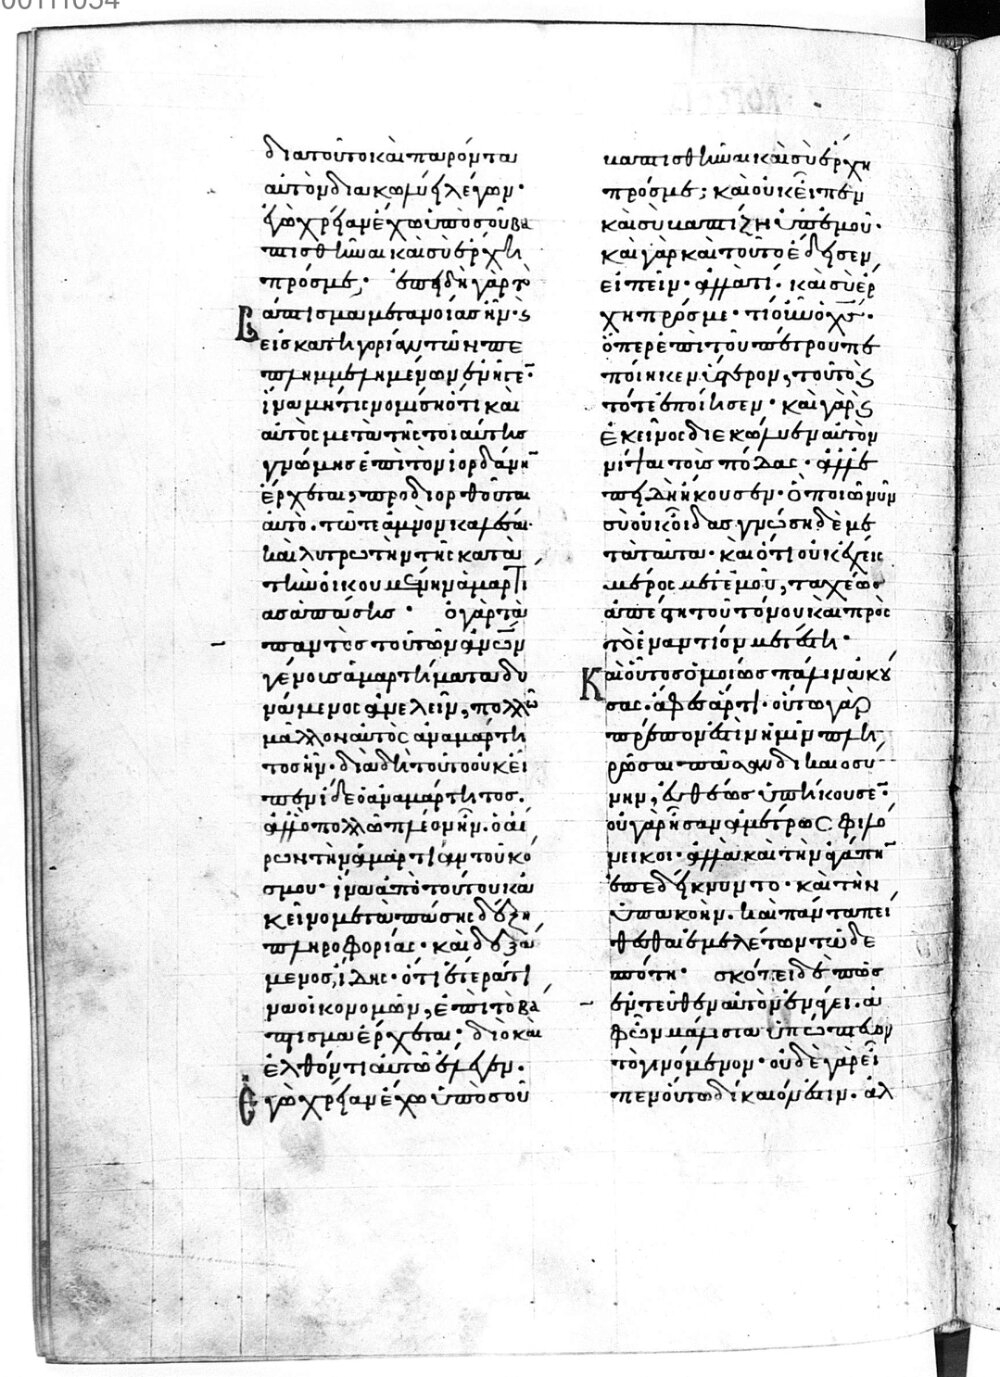 00111054
διατοῦτο καὶ παρόντα
αὐτὸν διακωλύει λέγων·
ἐγὼ χρείαν ἔχω ὑπὸ σοῦ βα
πτισθῆναι καὶ σὺ ἔρχῃ
πρός με; ἐπειδὴ γὰρ τὸ
βάπτισμα μετανοίας ἦν· καὶ
εἰς κατηγορίαν τῶν πε
πλημμελημένων ἐνῆγεν·
ἵνα μή τις νομίσῃ ὅτι καὶ
αὐτὸς μετὰ τῆς τοιαύτης
γνώμης ἐπὶ τὸν ἰορδάνην
ἔρχεται, προδιορθοῦται
αὐτὸ· τῷ τε ἀμνὸν καλέσαι
καὶ λυτρωτὴν τῆς κατὰ
τὴν οἰκουμένην ἁμαρτί
ας ἁπάσης· ὁ γὰρ τὰ
παντὸς τοῦ τῶν ἀνθρώπων
γένους ἁμαρτήματα δυ
νάμενος ἀνελεῖν, πολλῷ
μᾶλλον αὐτὸς ἀναμάρτη
τος ἦν· διὰ δὴ τοῦτο οὐκ εἶ
πεν ἴδε ὁ ἀναμάρτητος·
ἀλλὸ πολλῷ πλέον ἦν· ὁ αἴ
ρων τὴν ἁμαρτίαν τοῦ κό
σμου· ἵνα ἀπὸ τούτου κἀ
κεῖνο μετὰ πάσης δέξῃ
πληροφορίας· καὶ δεξά
μενος, ἴδῃς· ὅτι ἕτερά τι
να οἰκονομῶν, ἐπὶ τὸ βά
πτισμα ἔρχεται· διὸ καὶ
ἐλθόντι αὐτῷ ἔλεγεν·
Ἐγὼ χρείαν ἔχω ὑπὸ σοῦ
βαπτισθῆναι καὶ σὺ ἔρχῃ
πρός με; καὶ οὐκ εἶπεν
καὶ σὺ βαπτίζῃ ὑπ' ἐμοῦ·
καὶ γὰρ καὶ τοῦτο ἔδεισεν
εἰπεῖν· ἀλλὰ τί· καὶ σὺ ἔρ
χῃ πρός με· τί οὖν ὁ χς·
ὅπερ ἐπὶ τοῦ πέτρου πε
ποίηκεν ὕστερον, τοῦτο καὶ
τότε ἐποίησεν· καὶ γὰρ καὶ
ἐκεῖνος διεκώλυεν αὐτὸν
νίψαι τοὺς πόδας· ἀλλ' ἐ
πειδὴ ἤκουσεν· ὃ ποιῶ νῦν
σὺ οὐκ οἶδας γνώσῃ δὲ με
τὰ ταῦτα· καὶ ὅτι οὐκ ἔχεις
μέρος μετ' ἐμοῦ, ταχέως
ἀπέστη τοῦ τόνου καὶ πρὸς
τὸ ἐναντίον μετέστη·
Καὶ οὗτος ὁμοίως πάλιν ἀκού
σας· ἄφες ἄρτι· οὕτω γὰρ
πρέπον ἐστὶν ἡμῖν πλη
ρῶσαι πᾶσαν δικαιοσύ
νην, εὐθέως ὑπήκουσεν·
οὐ γὰρ ἦσαν ἀμέτρως φιλό
νεικοι· ἀλλὰ καὶ τὴν ἀγάπην
ἐπεδείκνυντο· καὶ τὴν
ὑπακοήν· καὶ πάντα πεί
θεσθαι ἐμελέτων τῷ δε
σπότῃ· σκόπει δὲ πῶς
ἐντεῦθεν αὐτὸν ἐνάγει· ἀ
φ' ὧν μάλιστα ὑπώπτευε
τὸ γινόμενον· οὐδὲ γὰρ εἶ
πεν οὕτω δίκαιόν ἐστιν· ἀλ